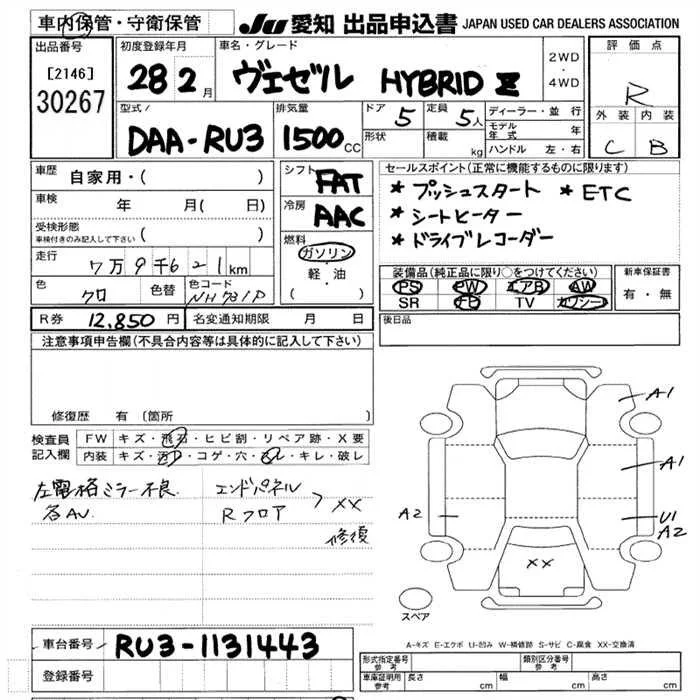 車内保管・守衛保管 JU 愛知 出品申込書 JAPAN USED CAR DEALERS ASSOCIATION
出品番号 初度登録年月 車名・グレード 評価点
[2146] 28 2月 ヴェゼル HYBRID Z 2WD・4WD R
30267 型式 排気量 ドア 定員 ディーラー・並行 外装 内装
DAA-RU3 1500CC 5 5人 モデル年式 年 C B
形状 積載 kg ハンドル 左・右
車歴 シフト セールスポイント(正常に機能するものに限ります)
自家用・( ) FAT *プッシュスタート *ETC
車検 年 月( 日) 冷房 AAC *シートヒーター
受検形態 車検付きのみ記入して下さい ( ) 燃料 *ドライブレコーダー
走行 7万9千621km ガソリン 装備品(純正品に限り○をつけてください) 新車保証書
色 クロ 色替 色コード NH731P 軽・油 ( ) PS PW エアB AW 有・無
SR TV カワシート
R券 12,850円 名変通知期限 月 日 後日品
注意事項申告欄(不具合内容等は具体的に記入して下さい)
修復歴 有(箇所
検査員 FW キズ・飛石・ヒビ割・リペア跡・X要
記入欄 内装 キズ・汚れ・コゲ・穴・スレ・キレ・破レ
左電格ミラー不良 エンドパネル
各AU. Rフロア XX
修復
A1
A1
A2 U1
A2
XX
スペア
A-キズ E-エクボ U-凹み W-補修跡 S-サビ C-腐食 XX-交換済
車台番号 RU3-1131443 形式指定番号 参考 類別区分番号 参考
登録番号 車庫証明用 参考 長さ cm 幅 cm 高さ cm